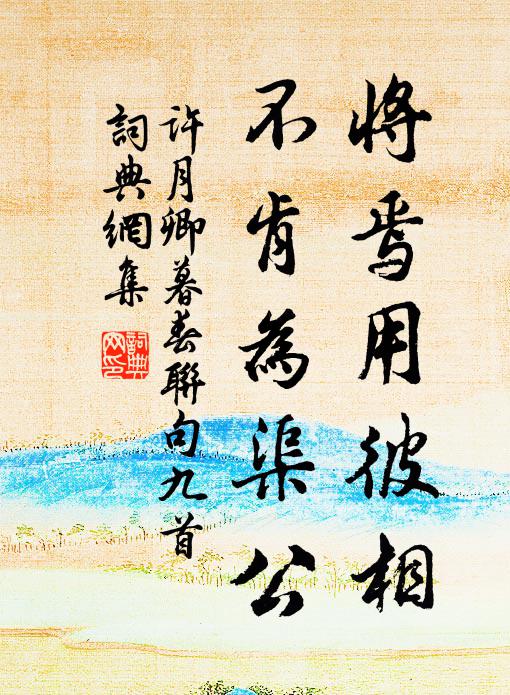 將焉用彼相
不肯為渠公
許月卿暮春聯句九首
詞典網集
詞典
网印